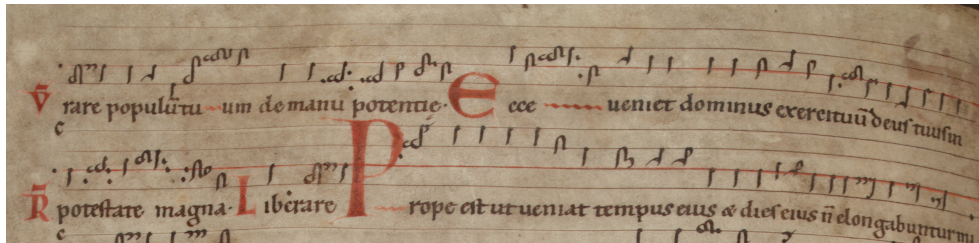 V̄ rare populū tuum de manu potentie. Ecce ueniet dominus exercituū deus tuus in
R̄ potestate magna. Liberare Prope est ut ueniat tempus eius & dies eius n̄ elongabuntur mi